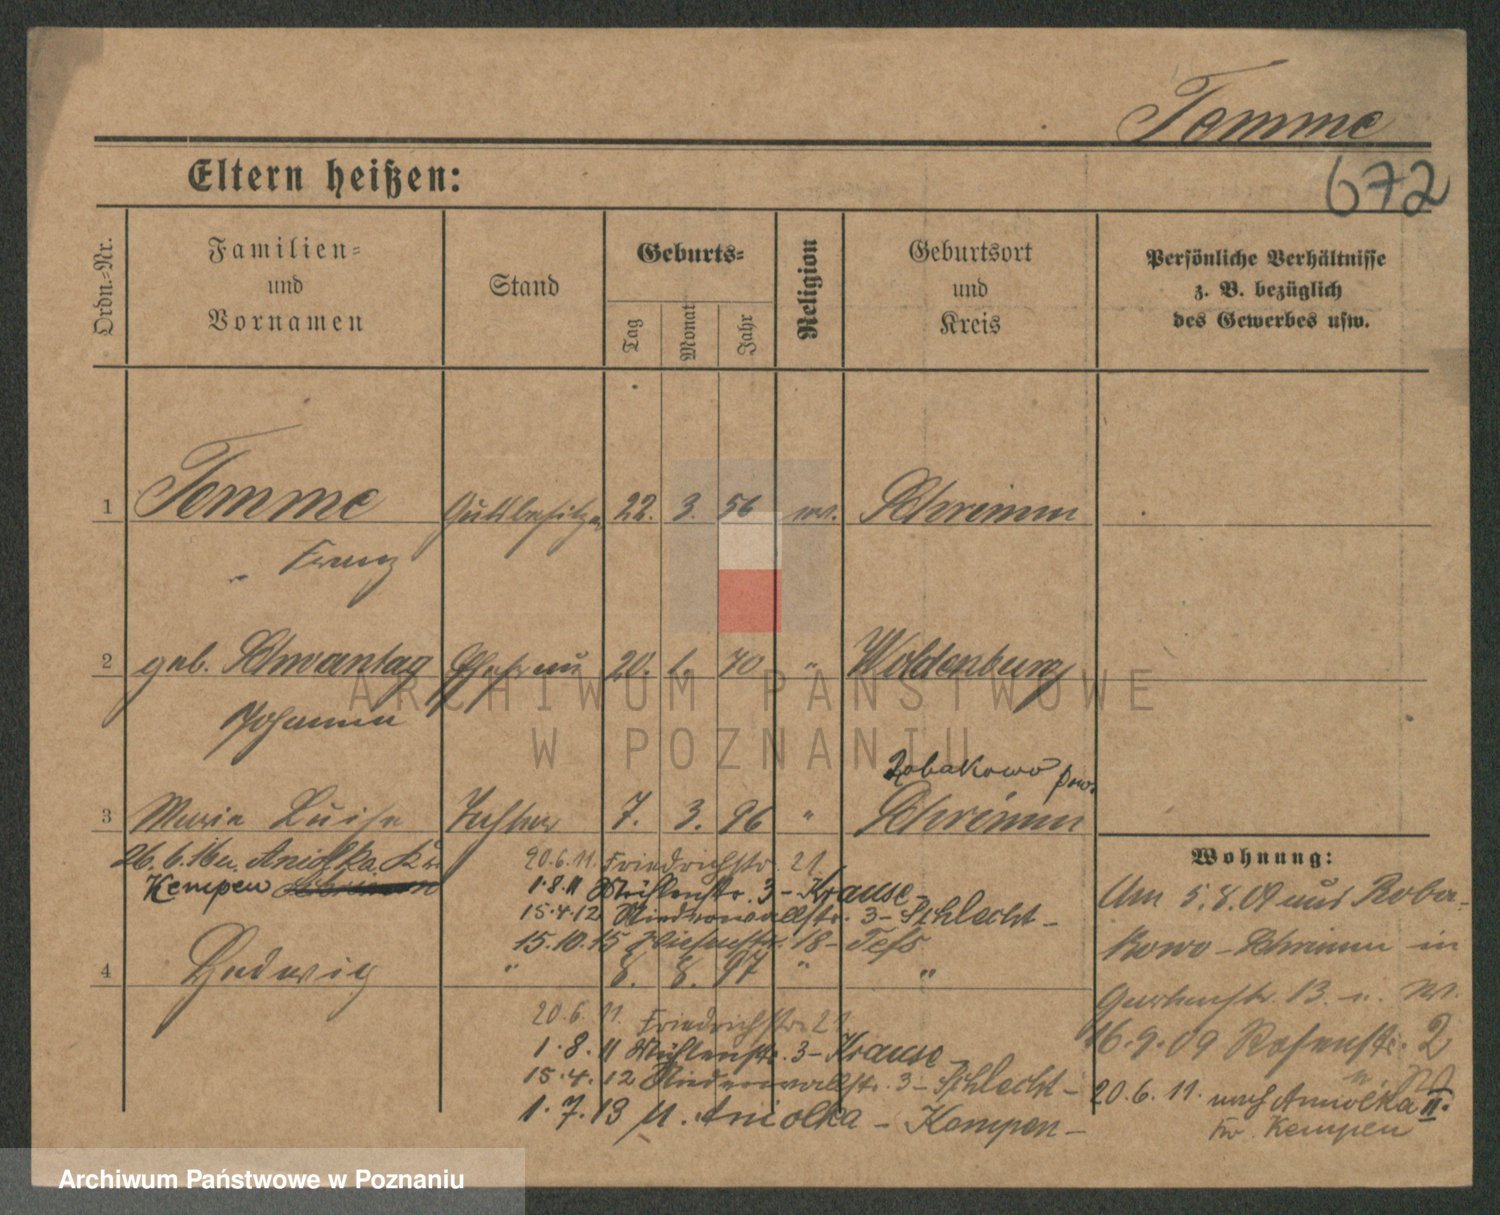 Temme
672
Eltern heißen:
Ordn.-Nr.
Familien-
und
Vornamen
Stand
Geburts-
Tag
Monat
Jahr
Religion
Geburtsort
und
Kreis
Persönliche Verhältnisse
z. B. bezüglich
des Gewerbes usw.
1 Temme Gutsbesitzer 22. 3. 56 Schrimm
Franz
2 geb. Schwantag Ehefrau 20. 70 " Woldenburg
Johanna
3 Marie Luise Tochter 7. 3. 96 " Schrimm
26.6.16 Aniolka Kr.
Kempen
20.6.11. Friedrichstr. 21
1.8.11 Mühlenstr. 3 - Krause -
15.4.12 Niederwallstr. 3 - Schlecht -
15.10.15 18 - Tess
4 Hedwig " 8. 8. 97 " "
20.6.11. Friedrichstr. 21
1.8.11 Mühlenstr. 3 - Krause -
15.4.12 Niederwallstr. 3 - Schlecht -
1.7.13 n. Aniolka - Kempen -
Wohnung:
Um 5.8.09 aus Roba-
kowo - Schrimm in
Gartenstr. 13. n. W.
16.9.09 Rosenstr. 2
20.6.11. nach Aniolka II.
Kr. Kempen
ARCHIWUM PAŃSTWOWE
W POZNANIU
Archiwum Państwowe w Poznaniu